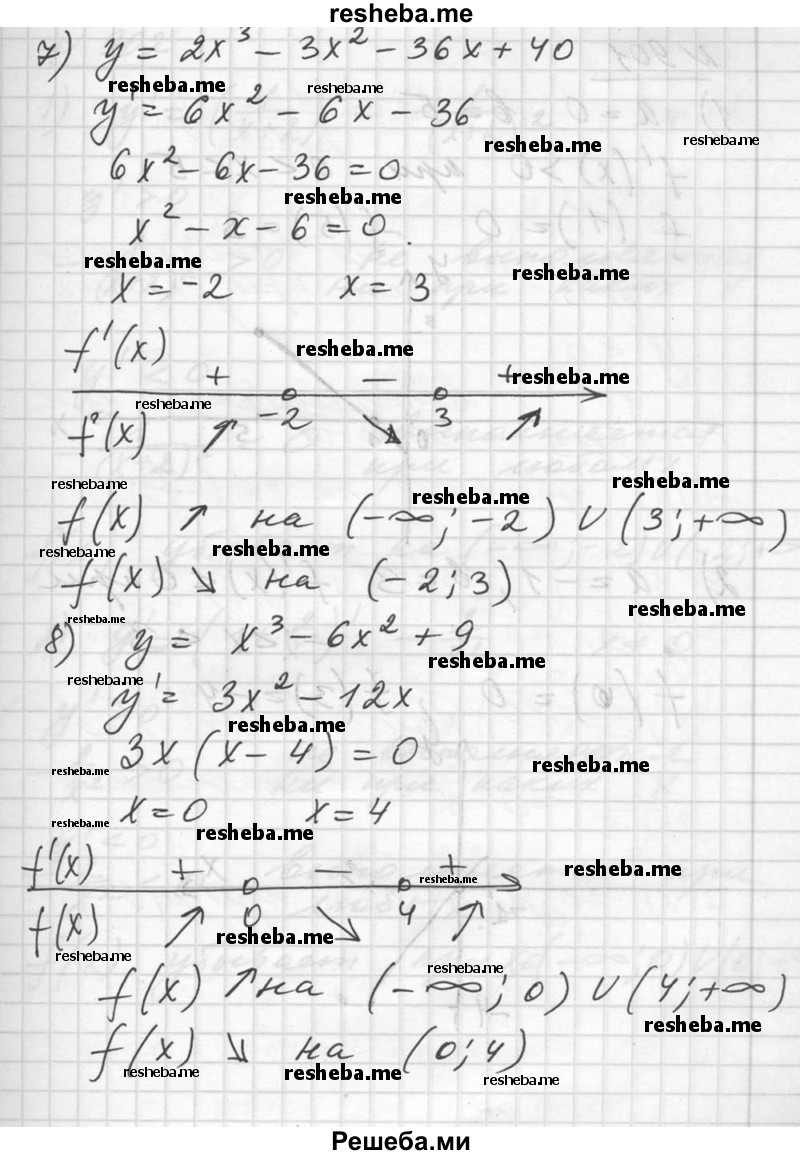 resheba.me
7) y = 2x³ - 3x² - 36x + 40
resheba.me resheba.me
y' = 6x² - 6x - 36
resheba.me resheba.me
6x² - 6x - 36 = 0
resheba.me
x² - x - 6 = 0.
resheba.me resheba.me
x = -2 x = 3
f'(x) + — +
resheba.me resheba.me
resheba.me
-2 3
f(x) ↗ ↘ ↗
resheba.me resheba.me resheba.me
f(x) ↗ на (-∞; -2) ∪ (3; +∞)
resheba.me resheba.me
f(x) ↘ на (-2; 3)
resheba.me resheba.me
8) y = x³ - 6x² + 9
resheba.me
resheba.me
y' = 3x² - 12x
resheba.me
3x(x - 4) = 0
resheba.me resheba.me
x = 0 x = 4
resheba.me resheba.me
f'(x) + — +
resheba.me resheba.me
0 4
f(x) ↗ ↘ ↗
resheba.me resheba.me
resheba.me
f(x) ↗ на (-∞; 0) ∪ (4; +∞)
resheba.me
f(x) ↘ на (0; 4)
resheba.me resheba.me resheba.me
Решеба.ми